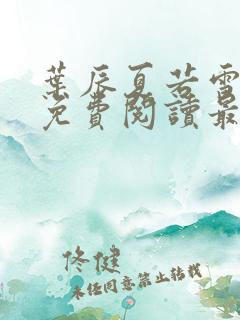 葉辰夏若雪
免費閱讀最
佟健
未经同意禁止转载